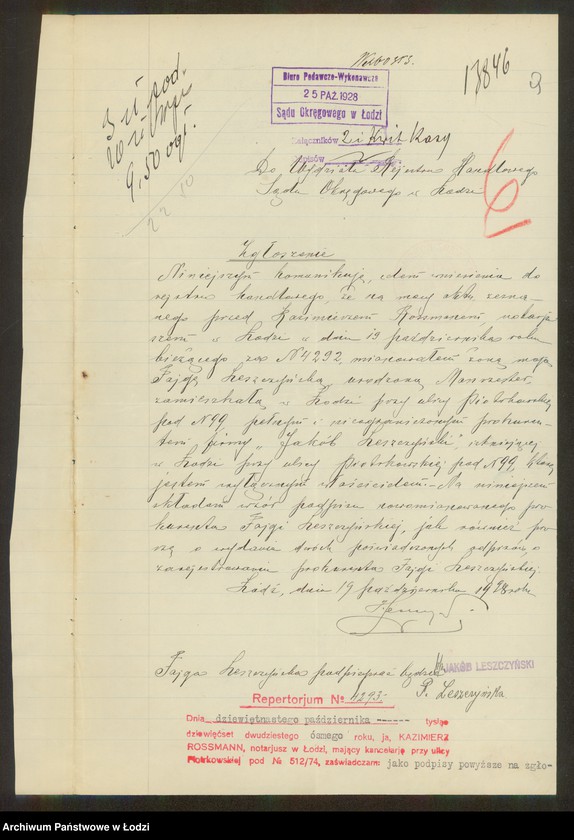 13846
Biuro Podawczo-Wykonawcze
25 PAŹ. 1928
Sądu Okręgowego w Łodzi
3 zł pod.
9,50 ogł.
22 50
Załączników 2 i Kwit Kasy
Do Wydziału Rejestru Handlowego
Sądu Okręgowego w Łodzi
Zgłoszenie
Niniejszym komunikuję, celem wniesienia do
rejestru handlowego, że na mocy aktu, zezna-
nego przed Kazimierzem Rossmanem, notarju-
szem w Łodzi w dniu 19 października roku
bieżącego za N4292, mianowałem żonę moją
Fajgę Leszczyńską, urodzoną Manzester,
zamieszkałą w Łodzi przy ulicy Piotrkowskiej
pod N99, pełnym i nieograniczonym prokuren-
tem firmy „Jakób Leszczyński", istniejącej
w Łodzi przy ulicy Piotrkowskiej pod N99, której
jestem wyłącznym właścicielem.- Na niniejszem
składam wzór podpisu nowomianowanego pro-
kurenta Fajgi Leszczyńskiej, jak również pro-
szę o wydanie dwóch poświadczonych odpisów o
zarejestrowaniu prokurenta Fajgi Leszczyńskiej.
Łódź, dnia 19 października 1928 roku
Fajga Leszczyńska podpisywać będzie
JAKÓB LESZCZYŃSKI
F. Leszczyńska
Repertorjum № 4293.-
Dnia dziewiętnastego października ------ tysiąc
dziewięćset dwudziestego ósmego roku, ja, KAZIMIERZ
ROSSMANN, notarjusz w Łodzi, mający kancelarję przy ulicy
Piotrkowskiej pod № 512/74, zaświadczam: jako podpisy powyższe na zgło-
Archiwum Państwowe w Łodzi